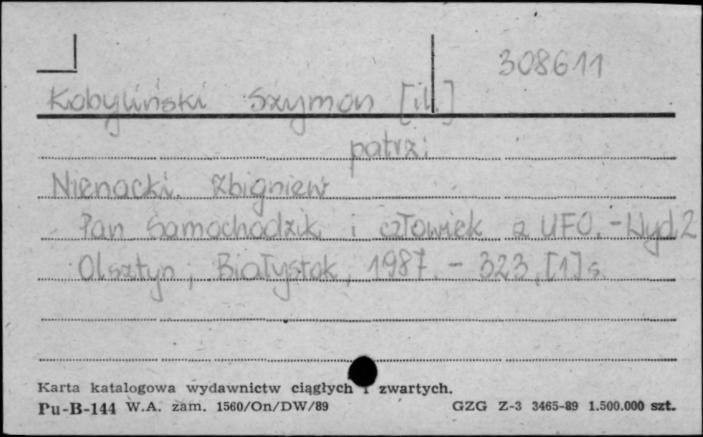 308611
Kobyliński Szymon [il.]
patrz:
Nienacki Zbigniew
Pan Samochodzik i człowiek z UFO. - Wyd. 2
Olsztyn; Białystok, 1987. - 323, [1] s.
Karta katalogowa wydawnictw ciągłych i zwartych.
Pu-B-144 W.A. zam. 1560/On/DW/89 GZG Z-3 3465-89 1.500.000 szt.